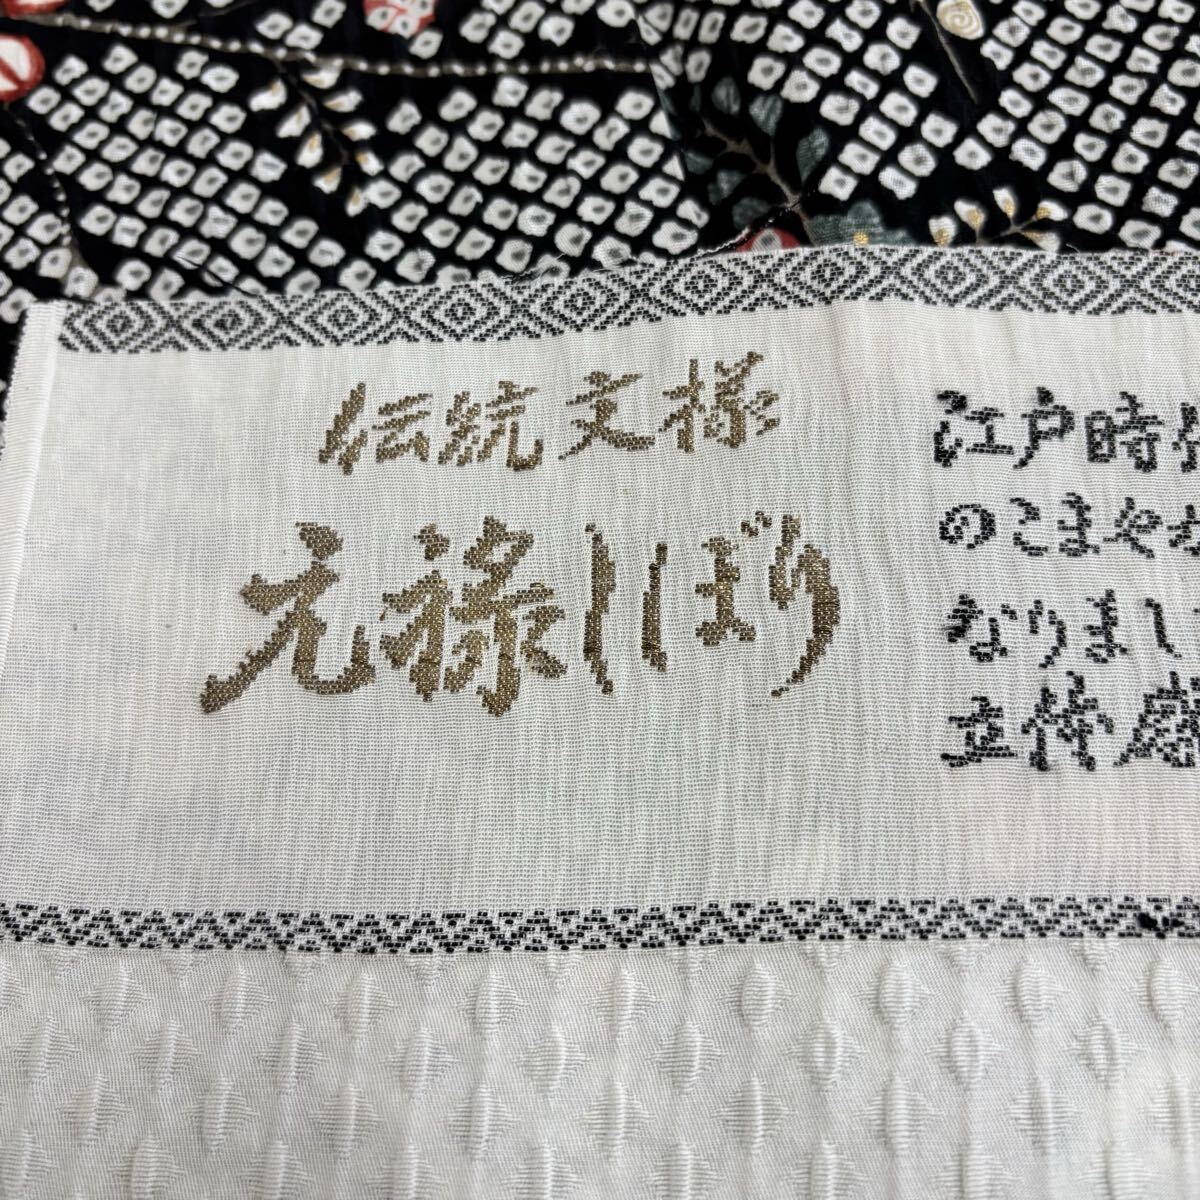 伝統文様
元禄しぼり
江戸時代
のこまやか
なりまし
立体感